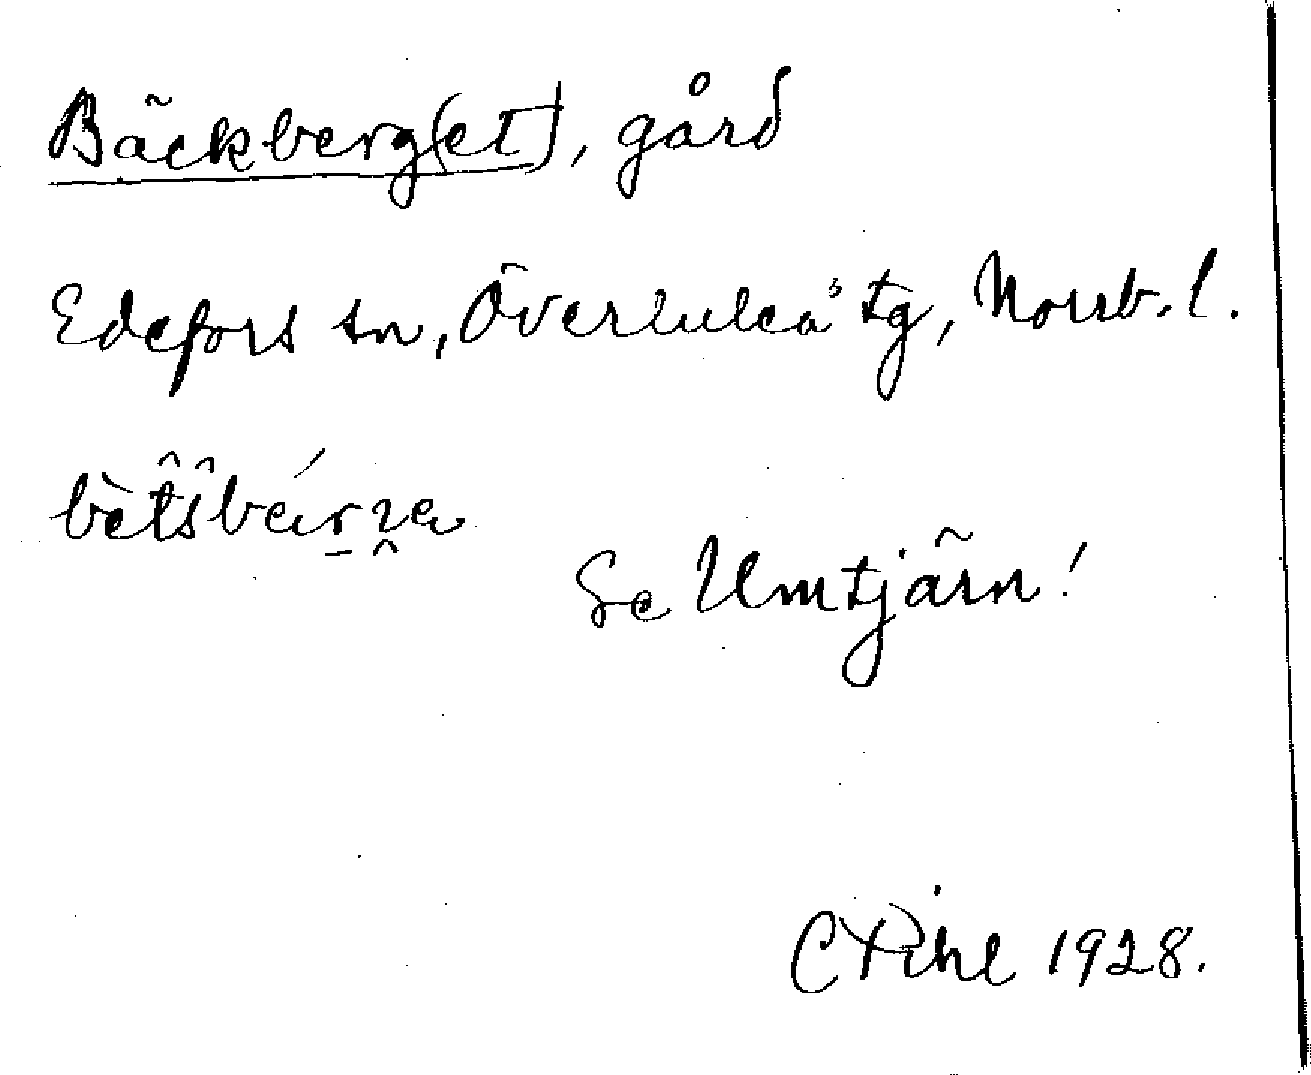 Bäckberg(et), gård
Edefors sn, Överluleå tg, Norrb. l.
Se Umtjärn!
C Pihl 1928.